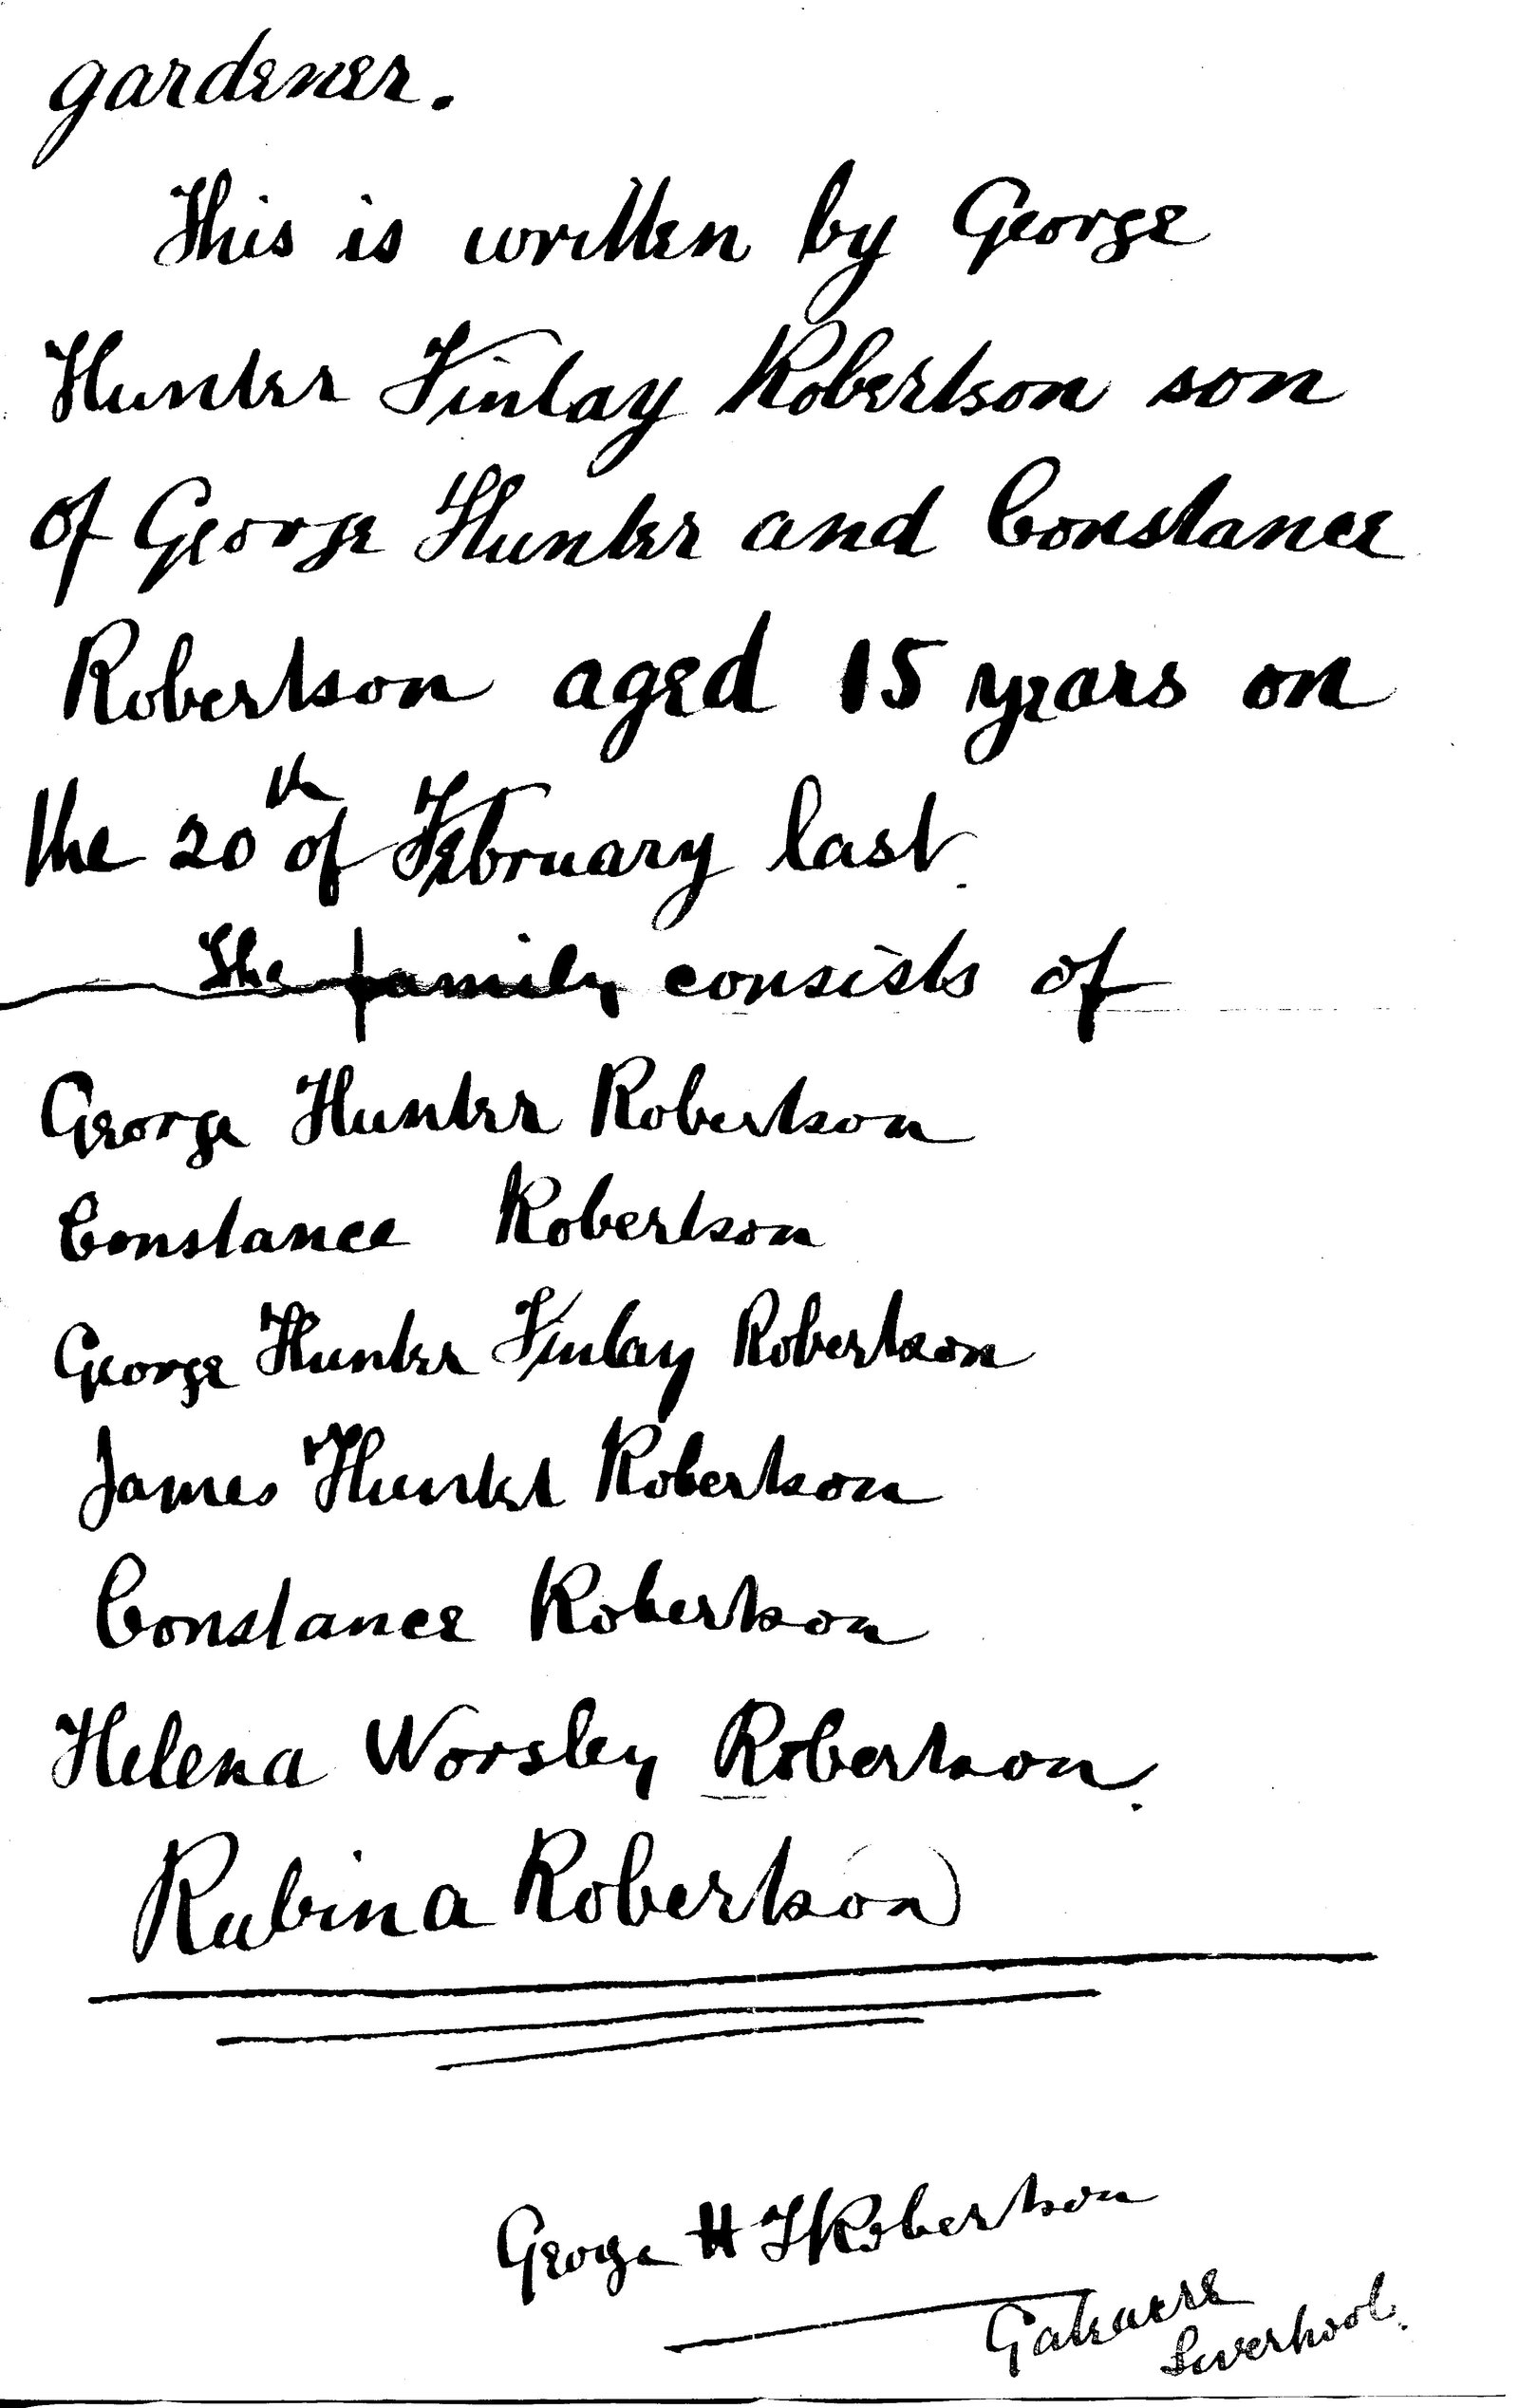 gardener.
This is written by George
Hunter Finlay Robertson son
of George Hunter and Constance
Robertson aged 15 years on
the 20th of February last.
The family consists of
George Hunter Robertson
Constance Robertson
George Hunter Finlay Robertson
James Hunter Robertson
Constance Robertson
Helena Worsley Robertson.
Rubina Robertson
George H F Robertson
Gateacre
Liverpool.